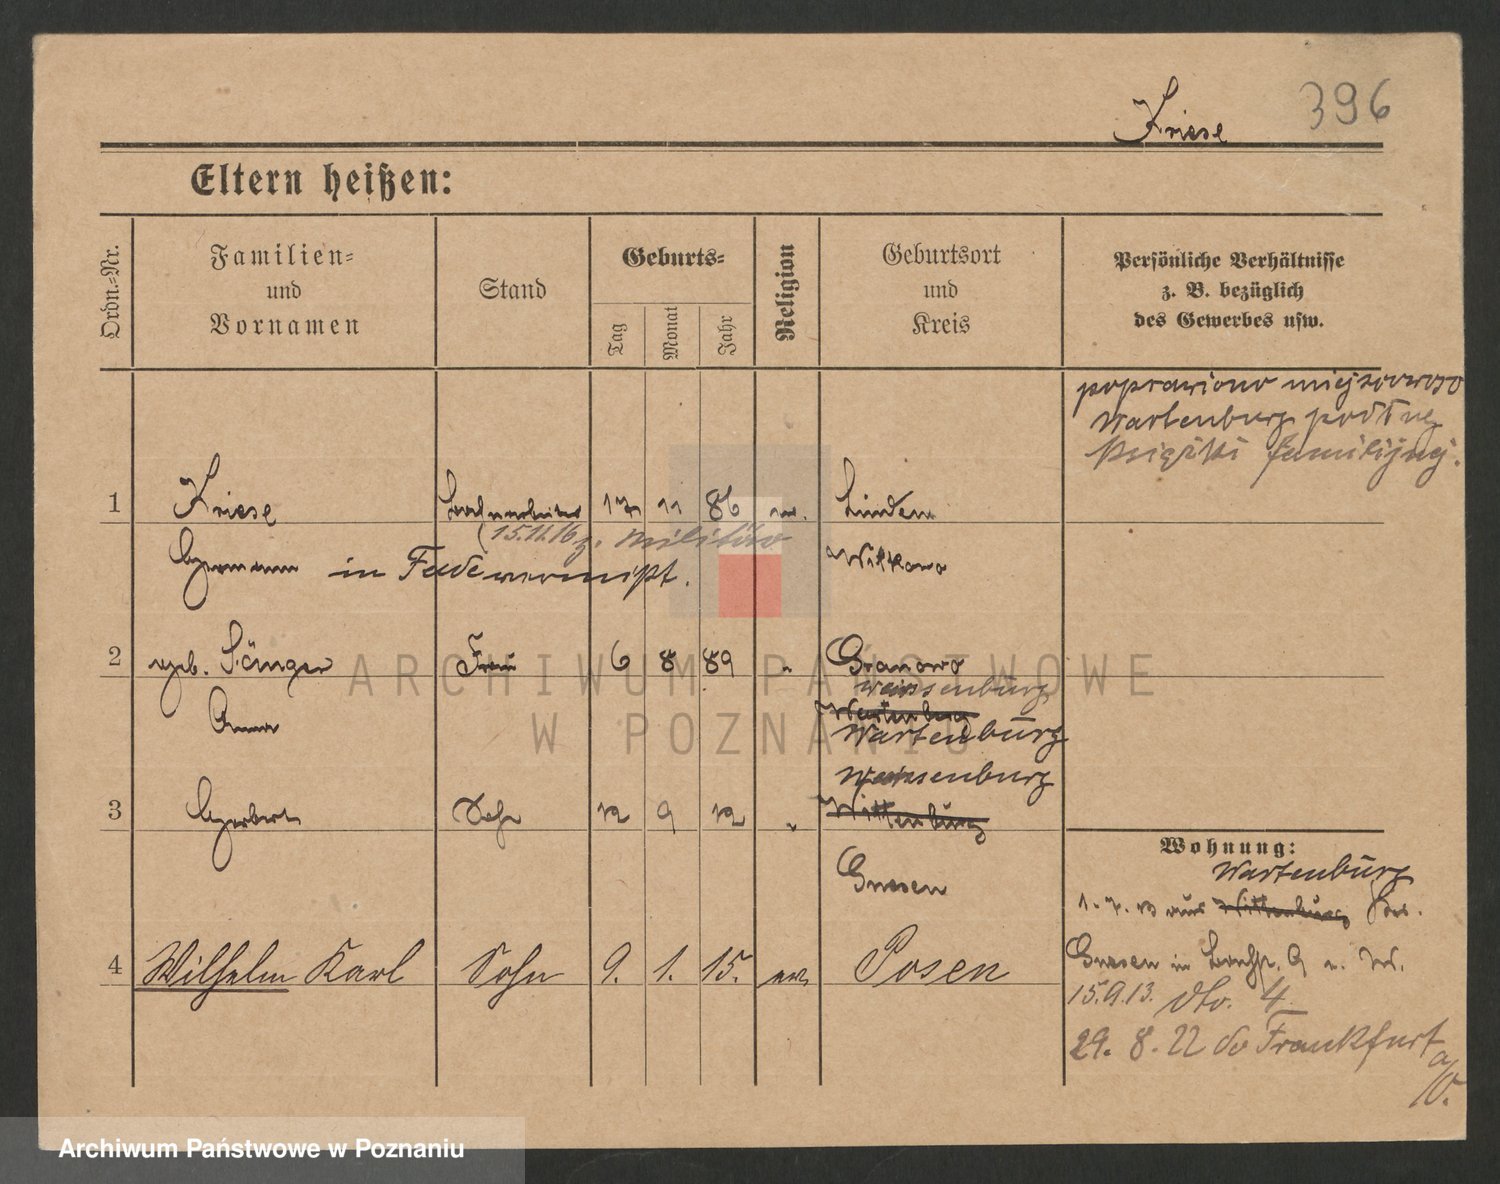 396
Kriese
Eltern heißen:
Ordn.-Nr.
Familien-
und
Vornamen
Stand
Geburts-
Tag
Monat
Jahr
Religion
Geburtsort
und
Kreis
Persönliche Verhältnisse
z. B. bezüglich
des Gewerbes usw.
Wartenburg podług
książki familijnej.
1
Kriese
17 11 86
ev.
Linden
15.11.16 z. Militär
Hermann
Witkowo
2
geb. Sänger
Frau
6 8 89
"
Granowo
Weissenburg
Anna
Wartenburg
Weissenburg
3
Herbert
Sohn
12 9 12
"
Wittenburg
Gnesen
Wohnung:
Wartenburg
1.7.13 aus Wittenburg Krs.
Gnesen in
4
Wilhelm Karl
Sohn
9. 1. 15.
ev.
Posen
15.9.13. dto. 4
29. 8. 22 do Frankfurt
a/O.
ARCHIWUM PAŃSTWOWE
W POZNANIU
Archiwum Państwowe w Poznaniu